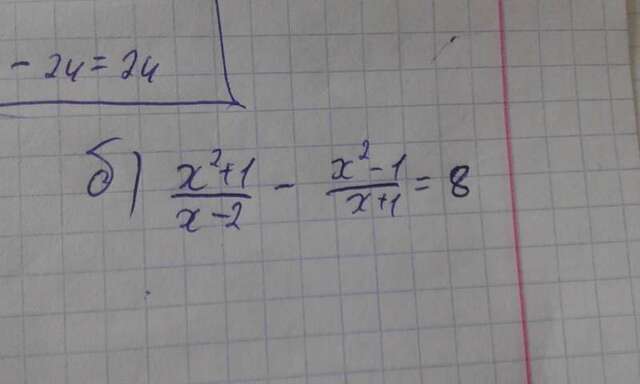 - 24 = 24
б) (x²+1)/(x-2) - (x²-1)/(x+1) = 8